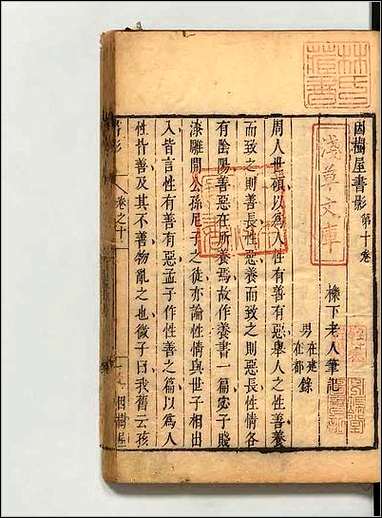 因樹屋書影第十卷
櫟下老人筆記
男在建錄
在都
周人世碩以為人性有善有惡舉人之性善養
而致之則善長性惡養而致之則惡長性情各
有陰陽善惡在所養焉故作養書一篇宓子賤
漆雕開公孫尼子之徒亦論性情與世子相出
入皆言性有善有惡孟子作性善之篇以為人
性皆善及其不善物亂之也微子曰我舊云孩
書影
卷之十
因樹屋
淺草文庫
林氏藏書